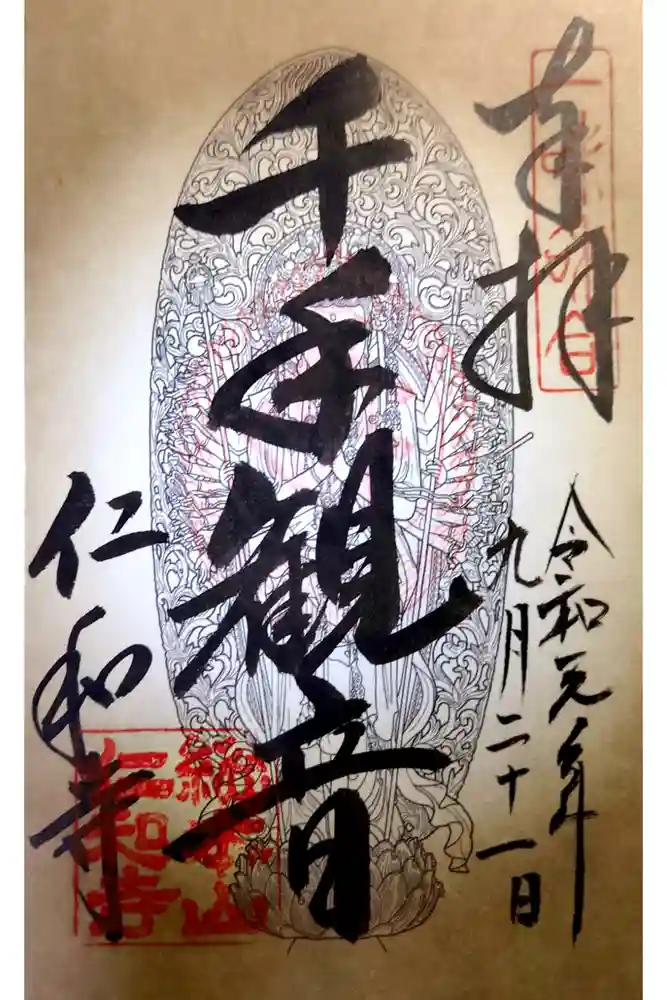 奉拝
令和元年
九月二十一日
千手観音
仁和寺
総本山
仁和寺